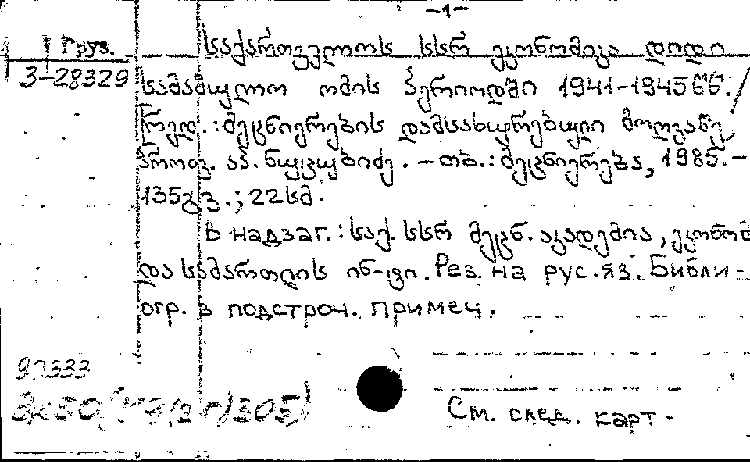 -1-
Груз. საქართველოს სსრ ეკონომიკა დიდი
3-28329 სამამულო ომის პერიოდში 1941-1945 წწ. /
რედ.: მეცნიერების დამსახურებული მოღვაწე,
პროფ. აკ. ნუცუბიძე. – თბ.: მეცნიერება, 1985. –
135 გვ. ; 22 სმ.
В надзаг.: საქ. სსრ მეცნ. აკადემია, ეკონომ
და სამართლის ინ-ტი. Рез. на рус. яз. Библи-
огр. в подстроч. примеч.
97333
См. след. карт.